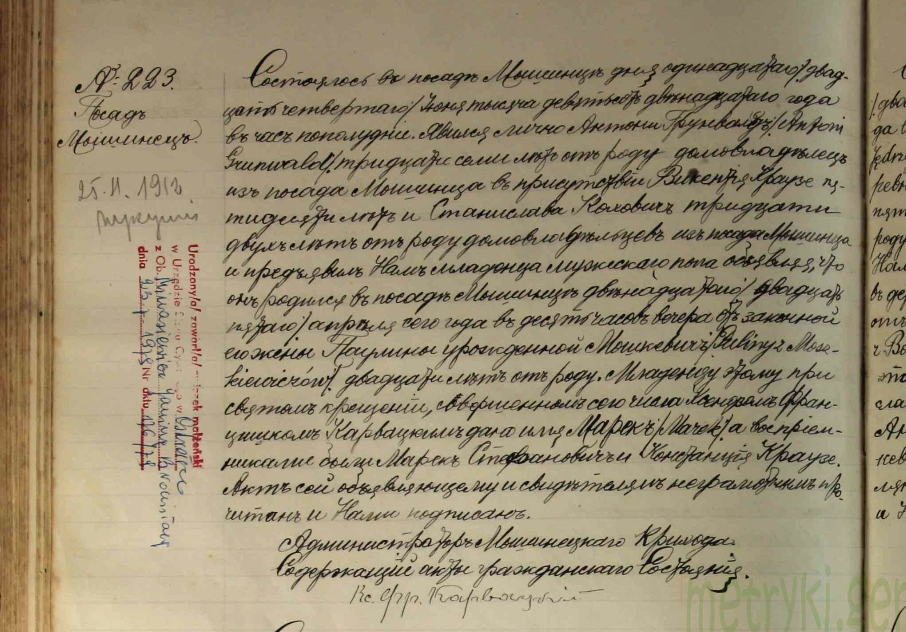 № 223.
Посадъ
Мышинецъ.
25. 4. 1912
Состоялось въ посадѣ Мышинцѣ дня одинадцатаго/двад-
цать четвертаго/ Іюня тысяча девятьсотъ двѣнадцатаго года
въ часъ пополудни. Явился лично Антони Грунвальдъ/Antoni
Grunwald/, тридцати семи лѣтъ отъ роду домовладѣлецъ
изъ посада Мышинца въ присутствіи Викентія Краузе пя-
тидесяти лѣтъ и Станислава Колович тридцати
двухъ лѣтъ отъ роду домовладѣльцевъ изъ посада Мышинца
и предъявилъ Намъ младенца мужескаго пола объявляя, что
онъ родился въ посадѣ Мышинцѣ двѣнадцатаго/двадцать
пятаго/ апрѣля сего года въ десять часовъ вечера отъ законной
его жены Паулины урожденной Мошкевичъ/Pauliny z Mosz-
kiewiczów/, двадцати лѣтъ отъ роду. Младенцу этому при
святомъ крещеніи, совершенномъ сего числа Ксендзомъ Фран-
цишкомъ Карвацкимъ дано имя Марекъ/Marek/, а воспріем-
никами были Марекъ Стефановичъ и Констанція Краузе.
Актъ сей объявляющему и свидѣтелямъ неграмотнымъ про-
читанъ и Нами подписанъ.
Администраторъ Мышинецкаго Прихода
Содержащій акты гражданскаго Состоянія.
Кс. Фр. Карвацкій
Urodzony/a/ zawarł/a/ związek małżeński
w Urzędzie Stanu Cywilnego w
z Ob. Janiną Bronisławą
dnia 23.V.1978 Nr aktu 16/78
metryki.gen